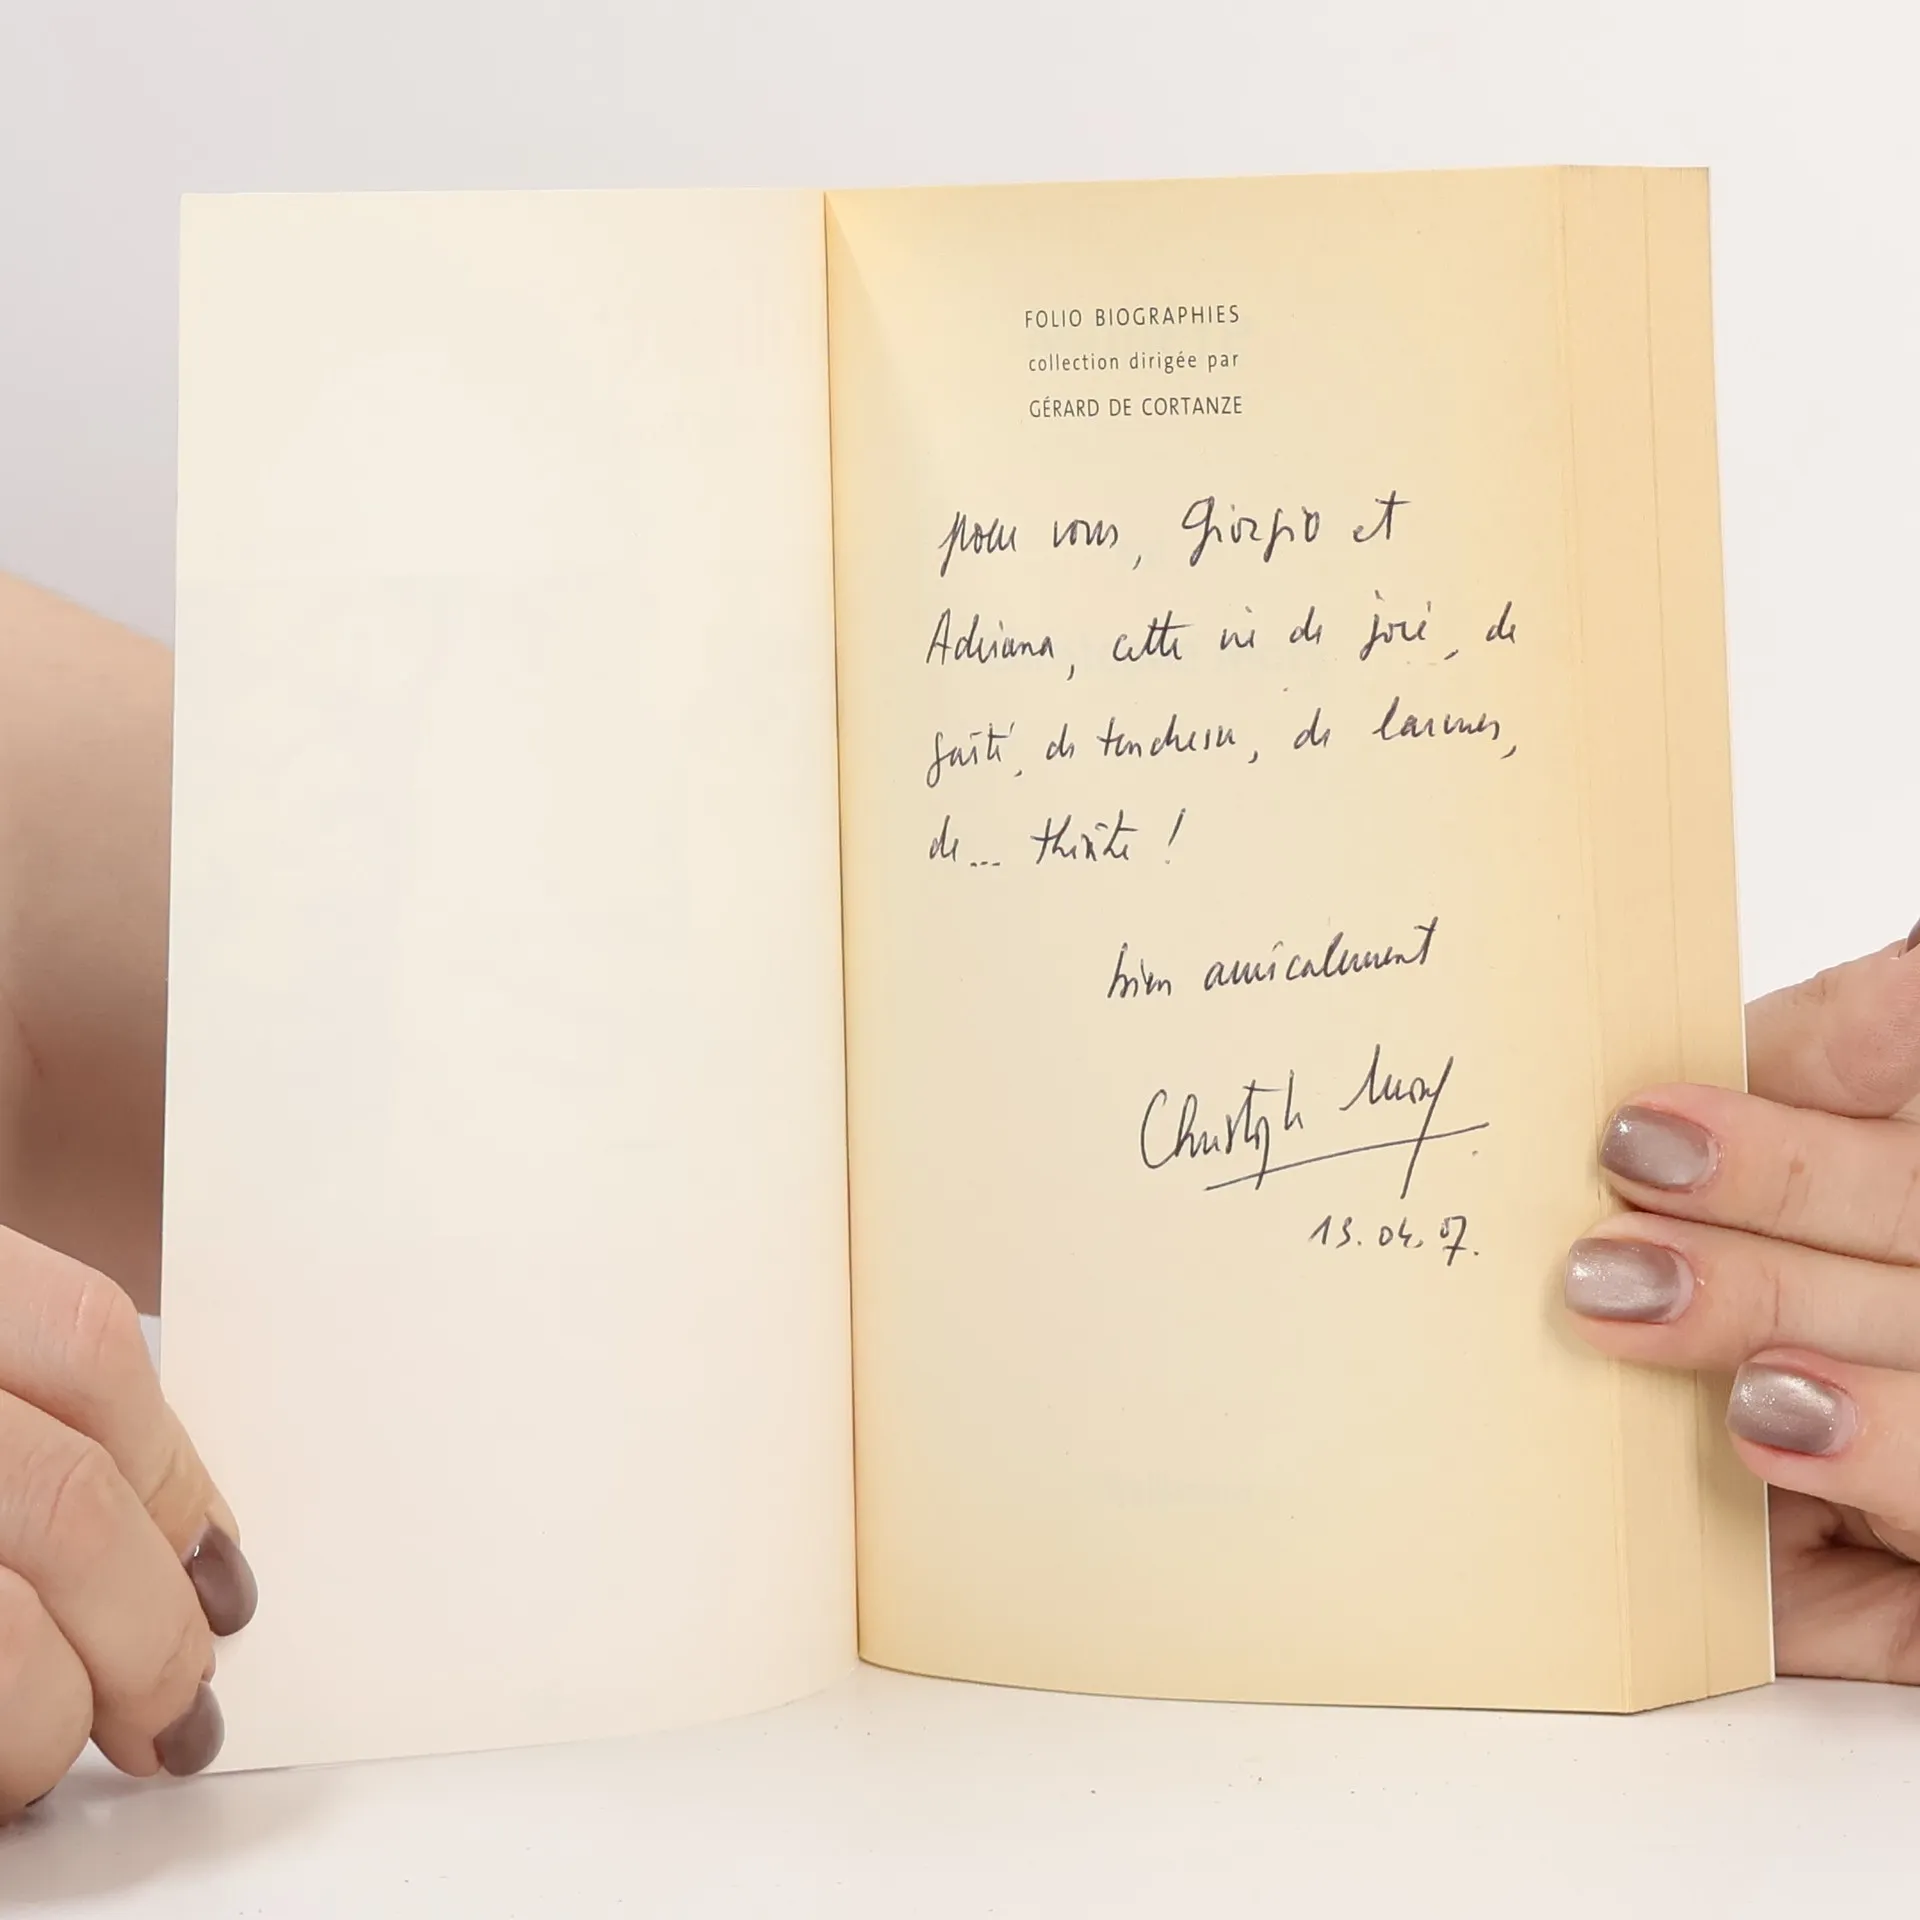 FOLIO BIOGRAPHIES
collection dirigée par
GÉRARD DE CORTANZE
pour vous, Giorgio et
Adriana, cette vie de joie, de
gaîté, de tendresse, de larmes,
de... théâtre !
bien amicalement
Christophe
13.04.07.